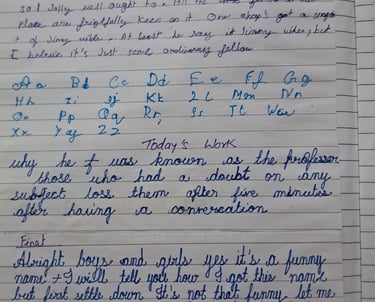 so I Jolly well ought to. All the
Place are frightfully keen on it One chap's got a
of Jimmy wides. At least he say it Jimmy wides, but
I believe it's Just some ordinary fellow
Aa Bb Cc Dd Ee Ff Gg
Hh Ii Jj Kk Ll Mm Nn
Oo Pp Qq Rr, Ss Tt Uu
Xx Yy Zz
Today's Work
why he I was known as the professor
those who had a doubt on any
subject loss them after five minutes
after having a conversation
Final
Alright boys and girls yes it's a funny
name I will tell you how I got this name
but first settle down It's not that funny let me